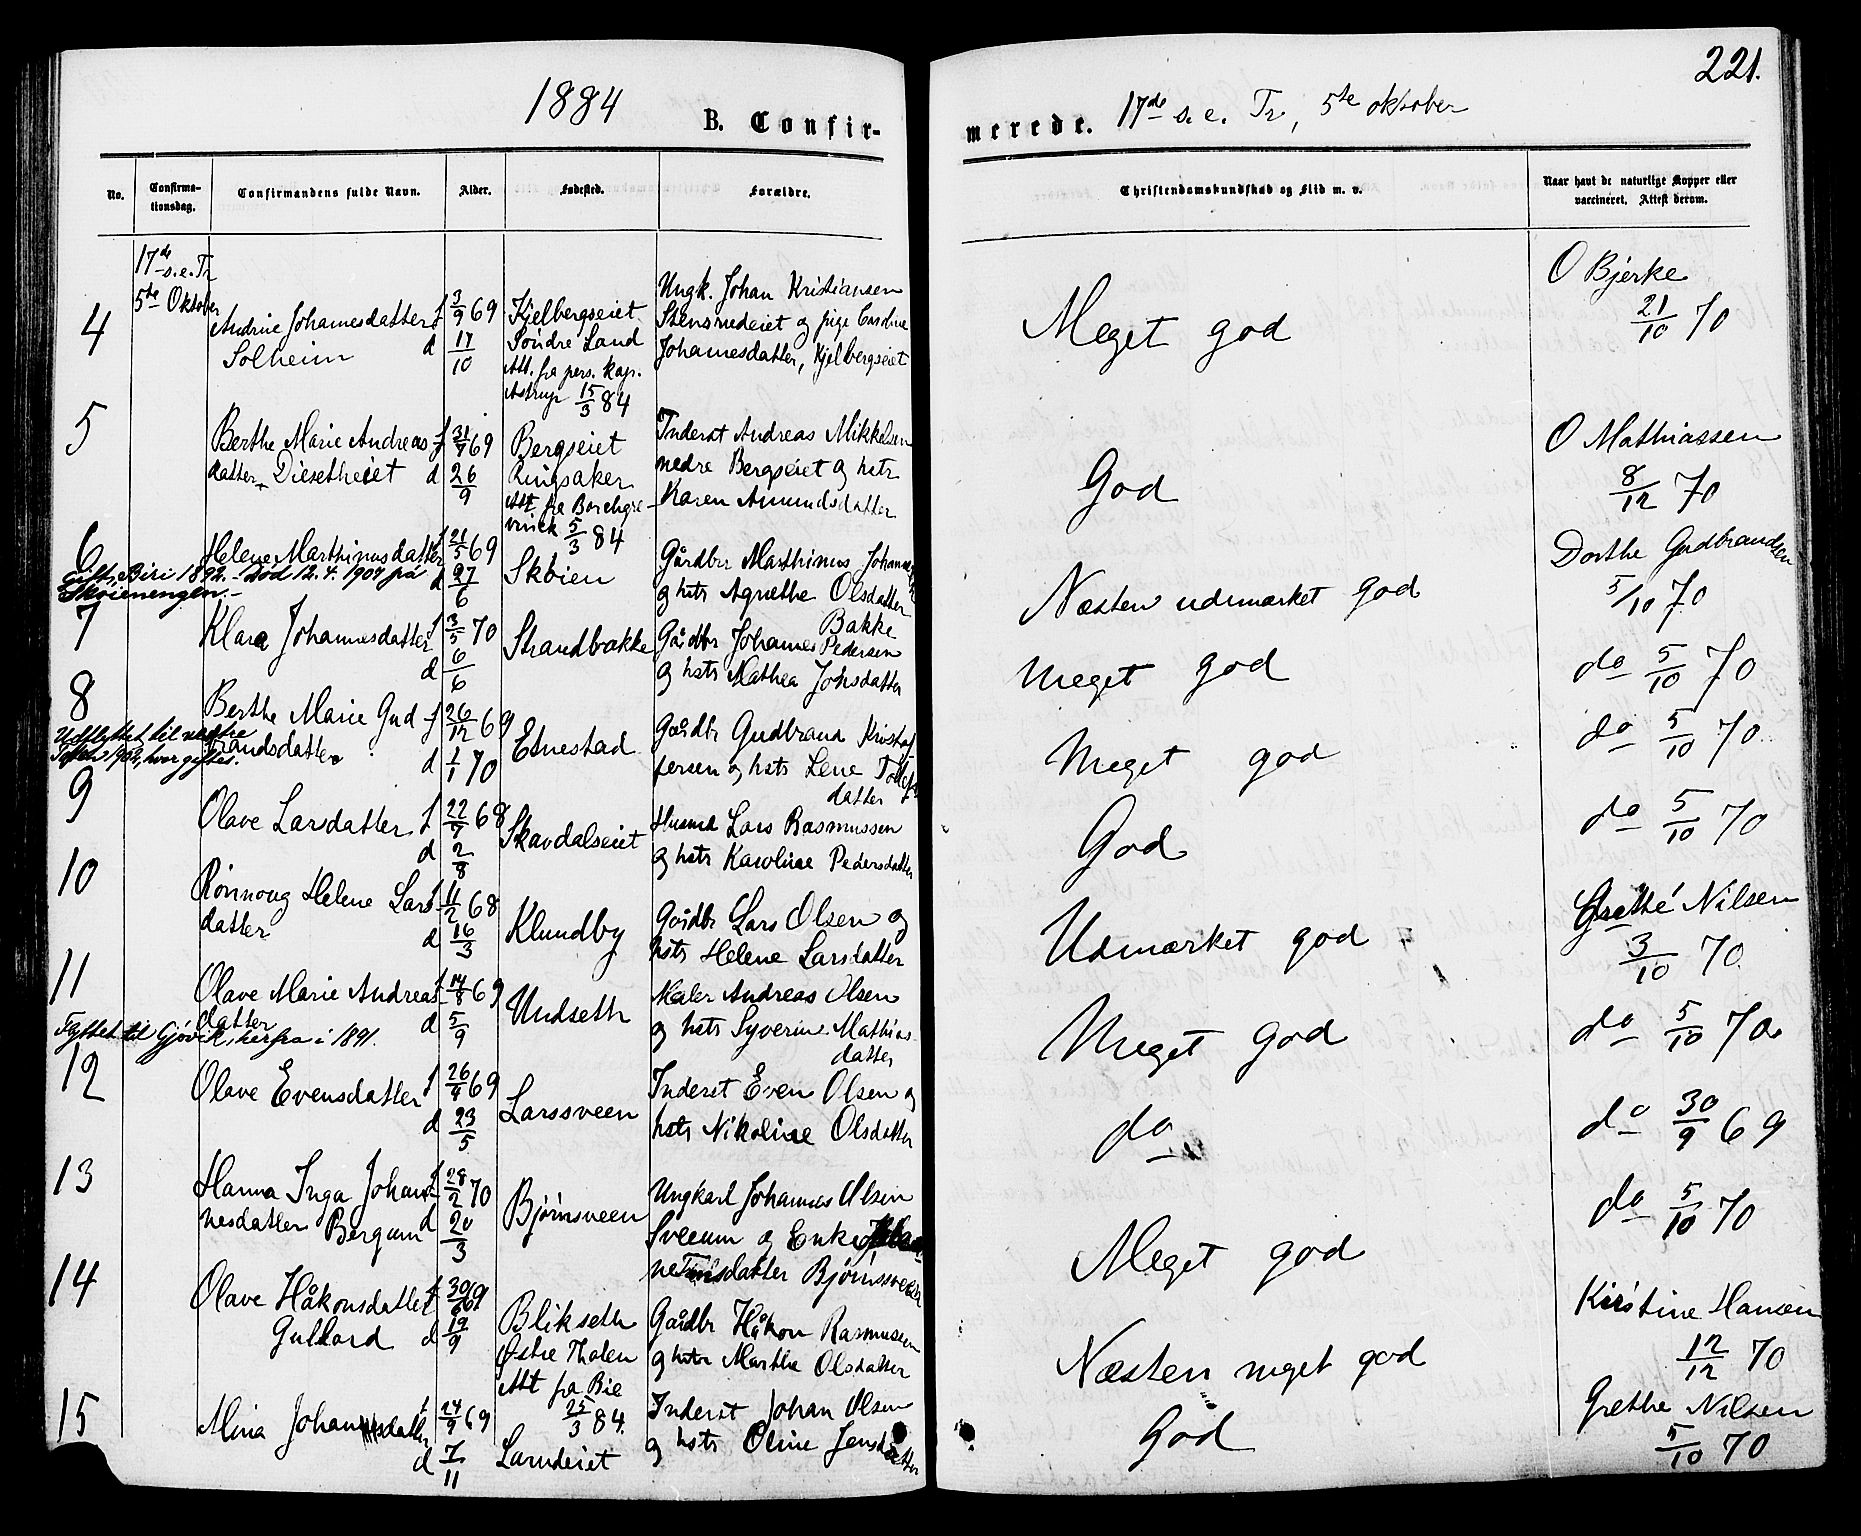 1884
B. Confir-
merede.
17de s. e. Tr, 5te oktober
221.
No.
Confirma-
tionsdag.
Confirmandens fulde Navn.
Alder.
Fødested.
Forældre.
Christendomskundskab og Flid m. v.
Naar havt de naturlige Kopper eller
vaccineret. Attest derom.
17de s. e. Tr
5te Oktober
4
Andrine Johannesdatter
Solheim
f 3/9 69
d 17/10
Kjelbergseiet
Søndre Land
Att. fra pers. kap.
Astrup 15/3 84
Ungk. Johan Kristiansen
og pige Caroline
Johannesdatter, Kjelbergseiet
Meget god
O Bjerke
21/10 70
5
Berthe Marie Andreas-
datter Diesetheiet
f 31/7 69
d 26/9
Bergseiet
Ringsaker
Att. fra Borchgre-
vinck 5/3 84
Inderst Andreas Mikkelsen
nedre Bergseiet og hstr
Karen Amundsdatter
God
O Mathiassen
8/12 70
6
Helene Marthinusdatter
Gift, Biri 1892. - død 12.4.1907 på
Skøienengen.-
f 21/5 69
d 27/6
Skøien
Gårdbr Marthinus Johannesen
og hstr Agnethe Olsdatter
Næsten udmærket god
Dorthe Gudbrandsen
5/10 70
7
Klara Johannesdatter
f 3/5 70
d 6/6
Strandbakke
Gårdbr Johannes Pedersen
Bakke
og hstr Mathea Johsdatter
Meget god
do 5/10 70
8
Berthe Marie Gud-
brandsdatter
Udflyttet til
1902, hvor giftes.
f 26/12 69
d 1/1 70
Etnestad
Gårdbr Gudbrand Kristof
fersen og hstr Lene Tollefs
datter
Meget god
do 5/10 70
9
Olave Larsdatter
f 22/7 68
d 2/8
Skavdalseiet
Husmd Lars Rasmussen
og hstr Karoline Pedersdatter
God
do 5/10 70
10
Rønnoug Helene Lars-
datter
f 11/2 68
d 16/3
Klundby
Gårdbr Lars Olsen og
hstr Helene Larsdatter
Udmærket god
Grethe Nilsen
3/10 70
11
Olave Marie Andreas-
datter
Flyttet til Gjøvik, herfra i 1891.
f 14/8 69
d 5/9
Undseth
Maler Andreas Olsen
og hstr Syverine Mathias-
datter
Meget god
do 5/10 70
12
Olave Evensdatter
f 26/4 69
d 23/5
Larssveen
Inderst Even Olsen og
hstr Nikoline Olsdatter
do
do 30/9 69
13
Hanna Inga Johan-
nesdatter Bergum
f 28/2 70
d 20/3
Bjørnsveen
Ungkarl Johannes Olsen
Sveeum og Enke
Bjørnssveen
Meget god
do 5/10 70
14
Olave Håkonsdatter
Gullord
f 30/6 69
d 19/9
Blikseth
Østre Thoten
Att fra Bie
25/3 84.
Gårdbr Håkon Rasmussen
og hstr Marthe Olsdatter
Næsten meget god
Kirstine Hansen
12/12 70
15
Mina Johannesdatter
f 24/9 69
d 7/11
Larndeiet
Inderst Johan Olsen
og hstr Oline Jensdatter
God
Grethe Nilsen
5/10 70